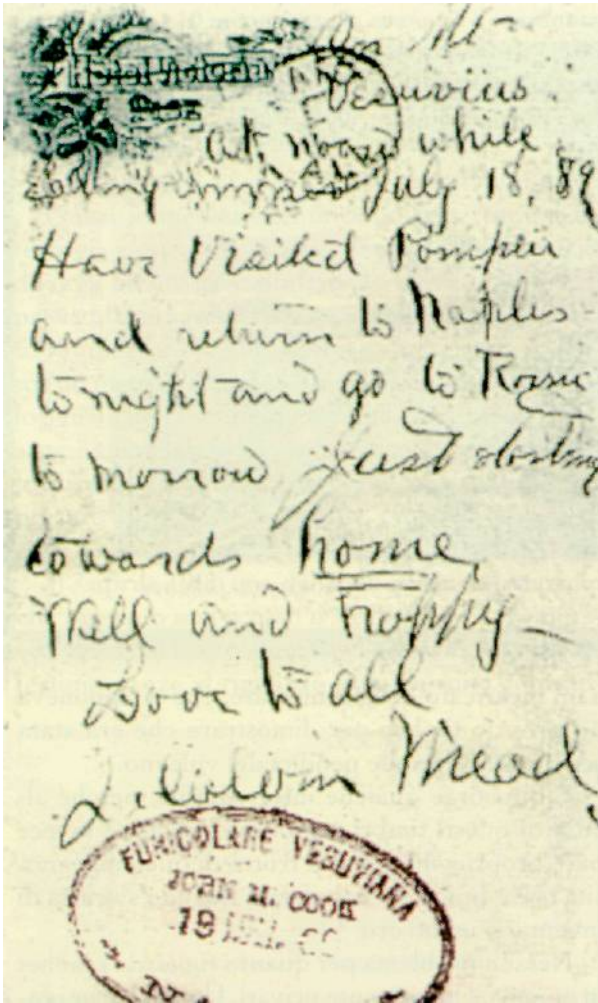 On Mt.
Vesuvius
at noon while
eating dinner July 18, 89
Have Visited Pompeii
and return to Naples
to night and go to Rome
to morrow just starting
towards home,
Well and happy—
Love to all
Mead
FUNICOLARE VESUVIANA
JOHN M. COOK
19